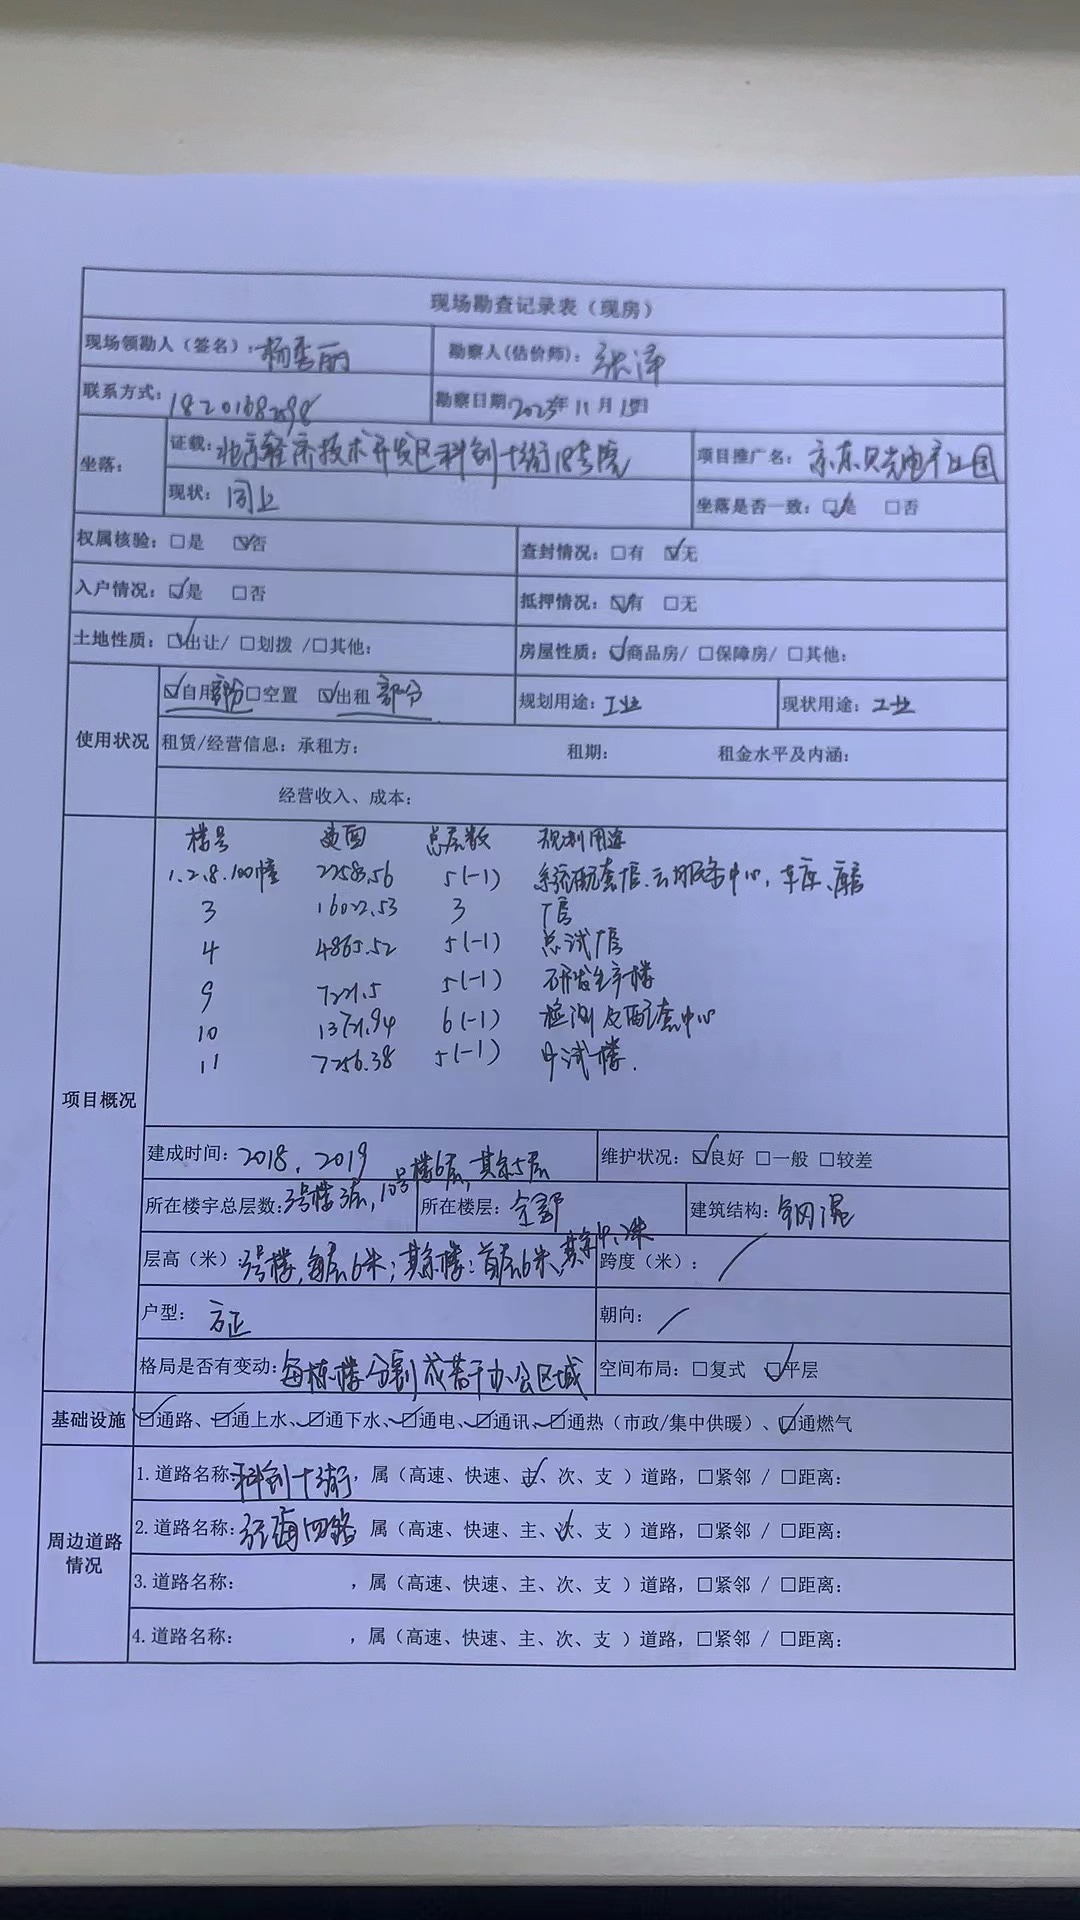 现场勘查记录表（现房）
现场领勘人（签名）：杨秀丽 勘察人(估价师)：张泽
联系方式：18201682598 勘察日期：2023年11月15日
坐落：
证载：北京经济技术开发区科创十街18号院 项目推广名：京东贝光电产业园
现状：同上 坐落是否一致：☑是 □否
权属核验：□是 ☑否 查封情况：□有 ☑无
入户情况：☑是 □否 抵押情况：☑有 □无
土地性质：☑出让/ □划拨 /□其他：
房屋性质：☑商品房/ □保障房/ □其他：
使用状况
☑自用部分□空置 ☑出租 部分 规划用途：工业 现状用途：工业
租赁/经营信息：承租方： 租期： 租金水平及内涵：
经营收入、成本：
项目概况
楼号 建面 总层数 规划用途
1.2.8.100幢 2258.56 5(-1) 系统配套厂房、云服务中心，车库、
3 16022.53 3 厂房
4 4865.52 5(-1) 总试厂房
9 7221.5 5(-1) 研发生产楼
10 1371.94 6(-1) 检测及配套中心
11 7256.38 5(-1) 中试楼.
建成时间：2018，2019 维护状况：☑良好 □一般 □较差
所在楼宇总层数：3号楼3层，10号楼6层，其余5层 所在楼层：全部 建筑结构：钢混
层高（米）：3号楼，每层6米；其余楼：首层6米，其余4.2米 跨度（米）：/
户型：方正 朝向：/
格局是否有变动：每栋楼分割成若干办公区域 空间布局：□复式 ☑平层
基础设施 ☑通路、☑通上水、☑通下水、☑通电、☑通讯、☑通热（市政/集中供暖）、☑通燃气
周边道路情况
1.道路名称：科创十街，属（高速、快速、主、次、支 ）道路，□紧邻 / □距离：
2.道路名称：经海四路 属（高速、快速、主、次、支 ）道路，□紧邻 / □距离：
3.道路名称： ，属（高速、快速、主、次、支 ）道路，□紧邻 / □距离：
4.道路名称： ，属（高速、快速、主、次、支 ）道路，□紧邻 / □距离：